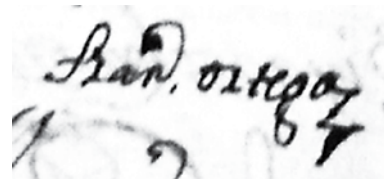 fran, ortega